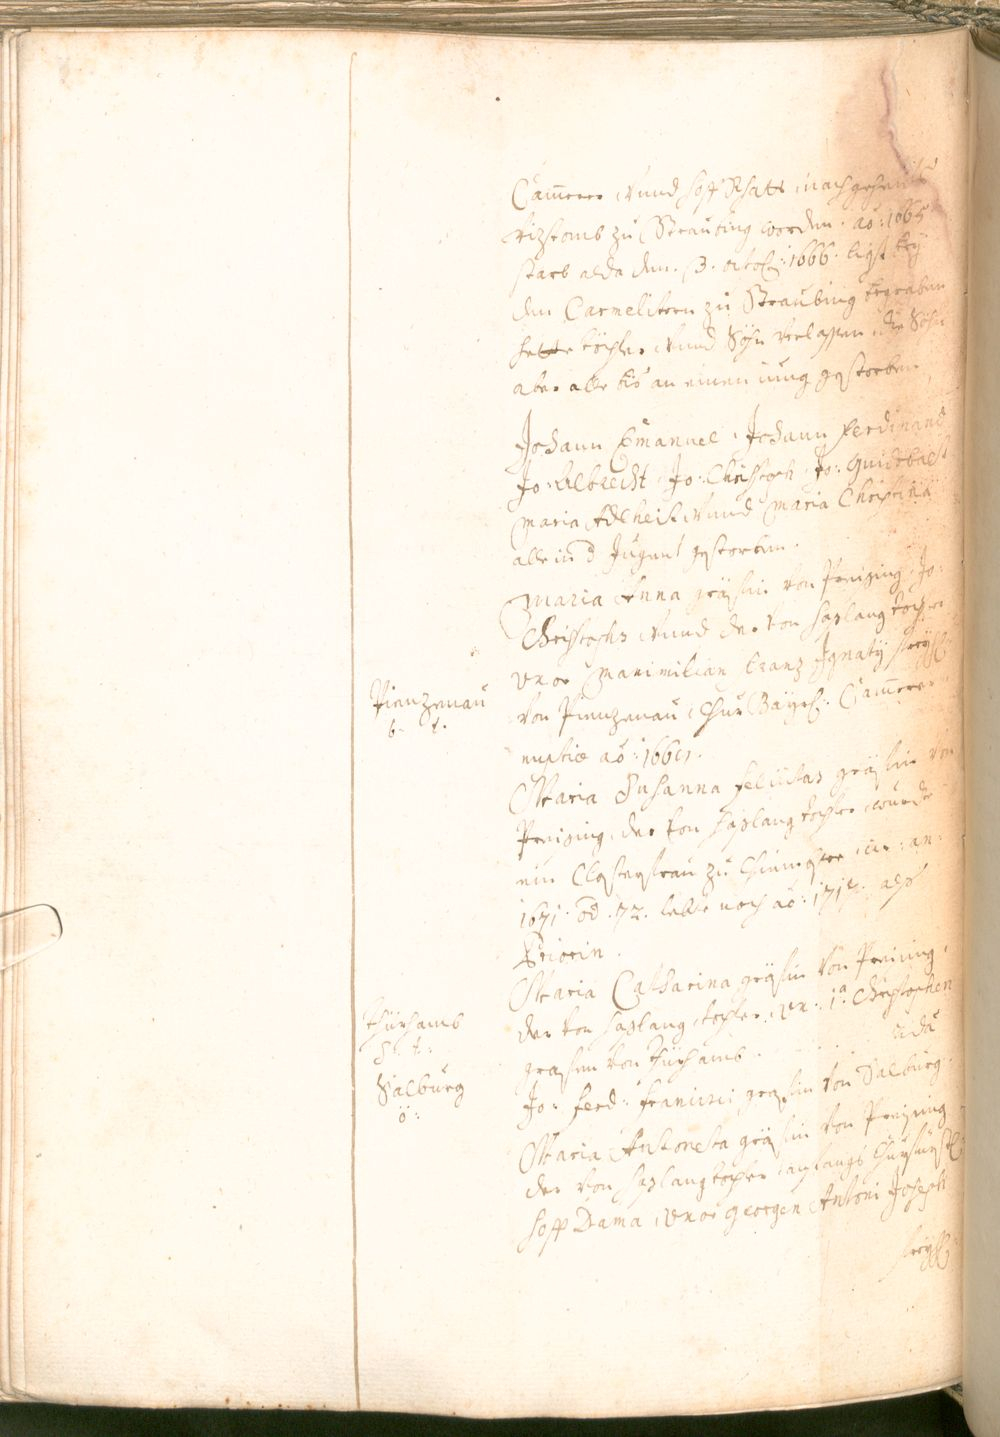 Cammerer vnnd hoff Rhatts nachgehents
Vizdomb zu Straubing worden. ao: 1665
starb alda den. 3. octob: 1666. ligt bey
den Carmelitern zu Straubing begraben
hette töchter vnnd Söhn verlassen die Söhn
aber alle bis an einen iung gestorben
Johann Emanuel, Johann Ferdinand
Jo: Albrecht, Jo: Christoph, Jo: Guidobalt
Maria Adlheit vnnd Maria Christina
alle in d Jugent gestorben.
Maria Anna gräfin von Preising, Jo:
Christophs vnnd der von haslang tochter
vxor Maximilian Franz Ignaty freyh:
Pienzenau
von Pienzenau Chur Bayrl: Cammerer
b. t.
nuptiæ ao: 1669.
Maria Susanna Felicitas gräfin von
Preising, der von haslang tochter, wurde
ein Closterfrau zu Chiembsee in an:
1671. od. 72. lebte noch ao: als
Priorin.
Maria Catharina gräfin von Preising,
der von haslang tochter, vx. 1.a Christophen
Thürhamb
grafen von Thürhamb. 2da
S. t:
Jo: Ferd: Francisci grafen von Salburg.
Salburg
ö:
Maria Antoneta gräfin von Preising
der von haslang tochter anfangs Churfürstl:
hoff Dama, vxor Georgen Antoni Joseph
freyh: